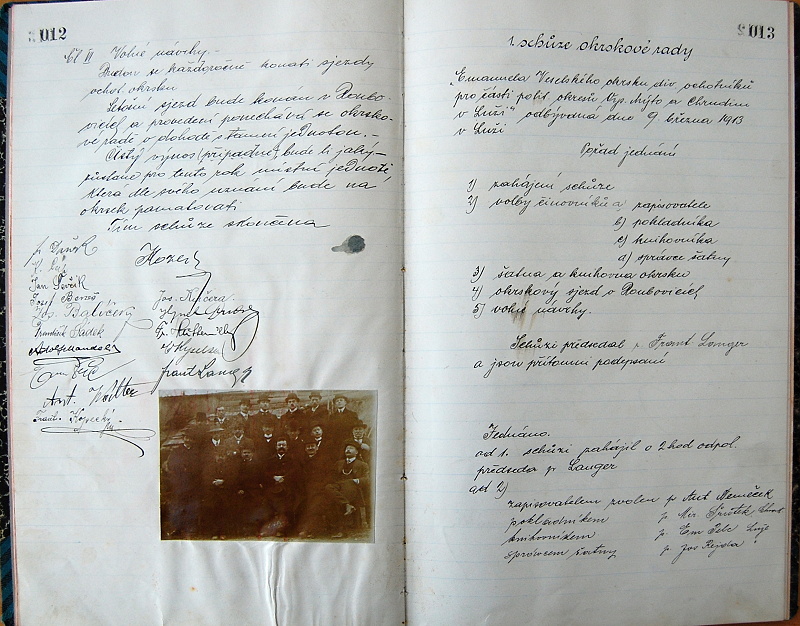 012
Čl. II Volné návrhy.-
Budou se každoročně konati sjezdy
ochot. okrsku
Letošní sjezd bude konán v Roubo-
vicích a provedení ponechává se okrsko-
vé radě v dohodě s tamní jednotou.-
Čistý výnos (případný) bude-li jaký-
zůstane pro tento rok místní jednotě
která dle svého uznání bude na
okrsek pamatovati
Tím schůze skončena
Jan Ševčík
Josef Beneš
Jos. Kučera
František Sádek
Adolf Mandel
Ant. Wolter
Frant. Kopecký
Frant Langr
013
1. schůze okrskové rady
"Emanuela Veselského okrsku div. ochotníků
pro části polit. okresů Vys. Mýto a Chrudim
v Luži" odbývaná dne 9. března 1913
v Luži
Pořad jednání
1) zahájení schůze
2) volby činovníků a zapisovatele
b) pokladníka
c) knihovníka
d) správce šatny
3) šatna a knihovna okrsku
4) okrskový sjezd v Roubovicích
5) volné návrhy.
Schůzi předsedal p. Frant Langer
a jsou přítomni podepsaní
Jednáno.
ad 1. schůzi zahájil o 2 hod odpol.
předseda p. Langer
ad 2)
zapisovatelem zvolen p. Ant Němeček
pokladníkem p.
knihovníkem p. Em Petr Luže
správcem šatny p. Jos Rejda